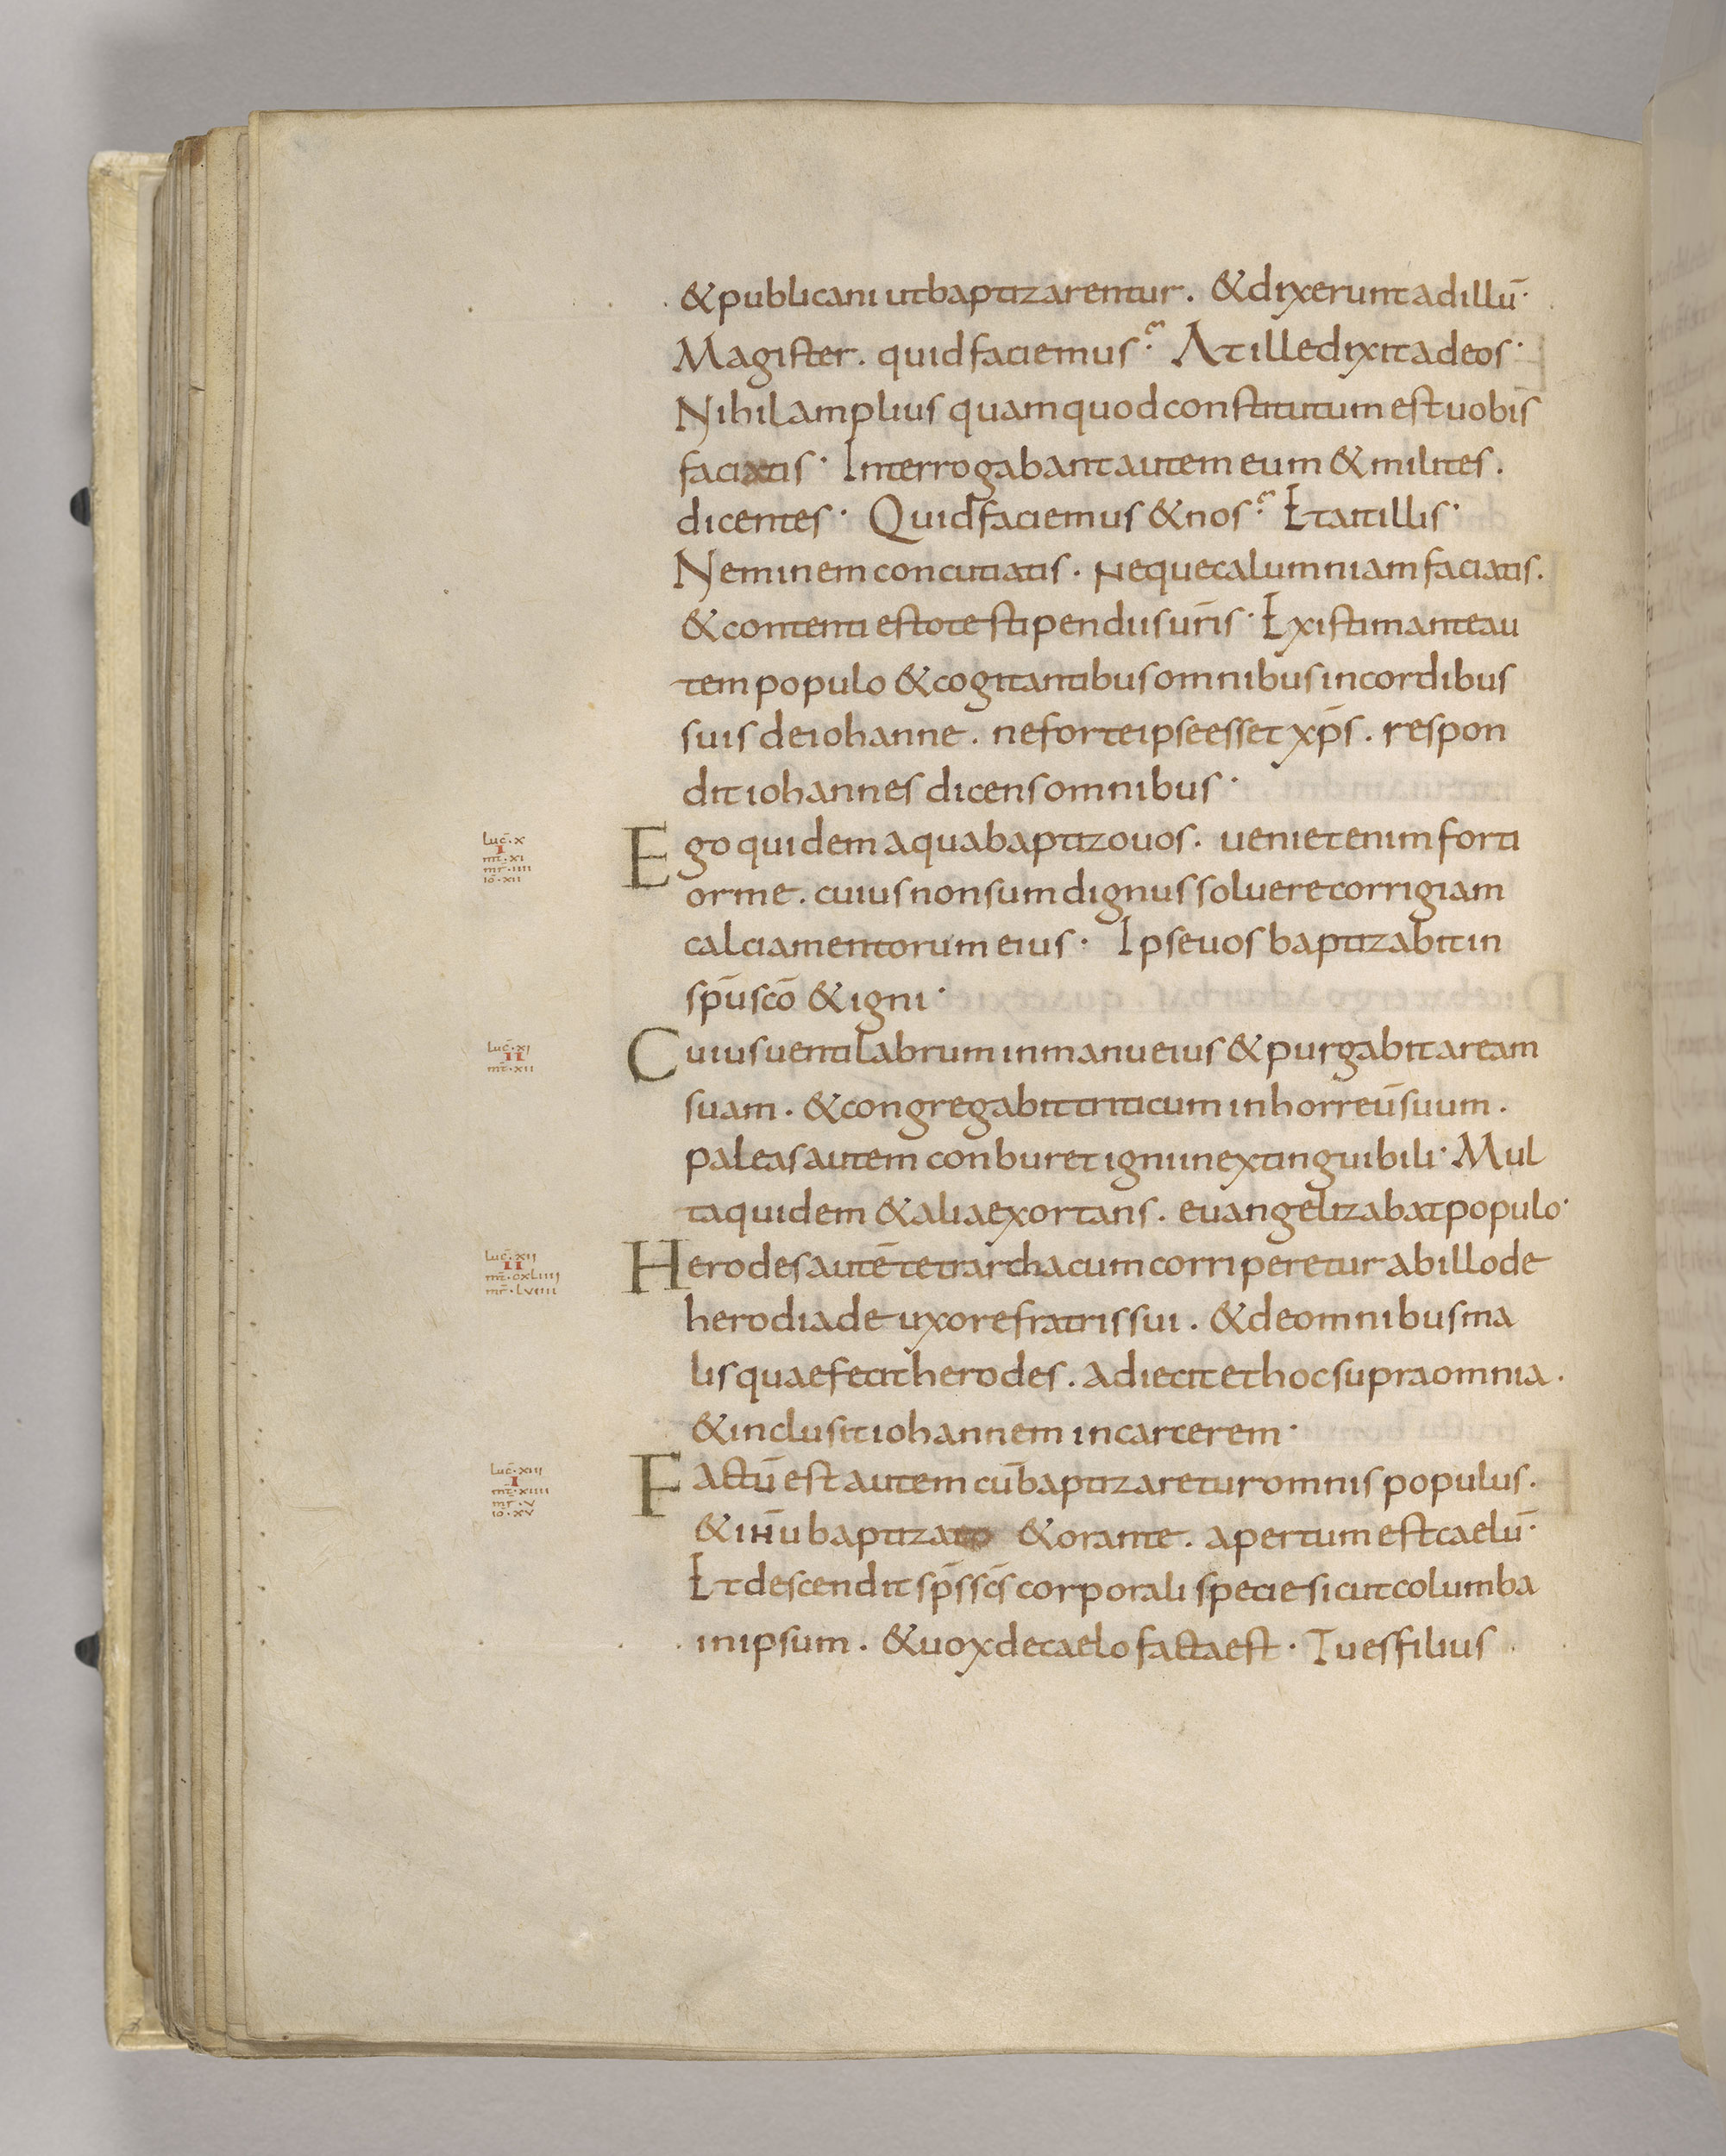 & publicani ut baptizarentur. & dixerunt ad illū·
Magister. quid faciemus? At ille dixit ad eos·
Nihil amplius quam quod constitutum est uobis
faciatis· Interrogabant autem eum & milites.
dicentes· Quid faciemus & nos? Et ait illis·
Neminem concutiatis. neque calumniam faciatis.
& contenti estote stipendiis ur̄is· Existimante au
tem populo & cogitantibus omnibus in cordibus
suis de iohanne. ne forte ipse esset xp̄s. respon
dit iohannes dicens omnibus·
luc̄·x
I
mt̄·xi
mr̄·iiii
io·xii
Ego quidem aqua baptizo uos. ueniet enim forti
or me. cuius non sum dignus soluere corrigiam
calciamentorum eius· Ipse uos baptizabit in
sp̄u scō & igni·
luc̄·xi
II
mt̄·xii
Cuius uentilabrum in manu eius & purgabit aream
suam. & congregabit triticum in horreū suum.
paleas autem conburet igni inextinguibili· Mul
ta quidem & alia exortans. euangelizabat populo·
luc̄·xii
II
mt̄·cxliiii
mr̄·lviiii
Herodes autē tetrarcha cum corriperetur ab illo de
herodiade uxore fratris sui. & de omnibus ma
lis quae fecit herodes. adiecit et hoc supra omnia.
& inclusit iohannem in carcerem·
luc̄·xiii
I
mt̄·xiiii
mr̄·v
io·xv
Factū est autem cū baptizaretur omnis populus.
& ihū baptizato & orante. apertum est caelū·
Et descendit sp̄s sc̄s corporali specie sicut columba
in ipsum. & uox de caelo facta est· Tu es filius